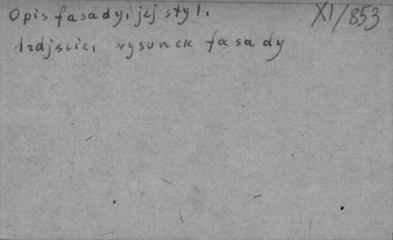 Opis fasady, jej styl. XI/853
Zdjęcie, rysunek fasady